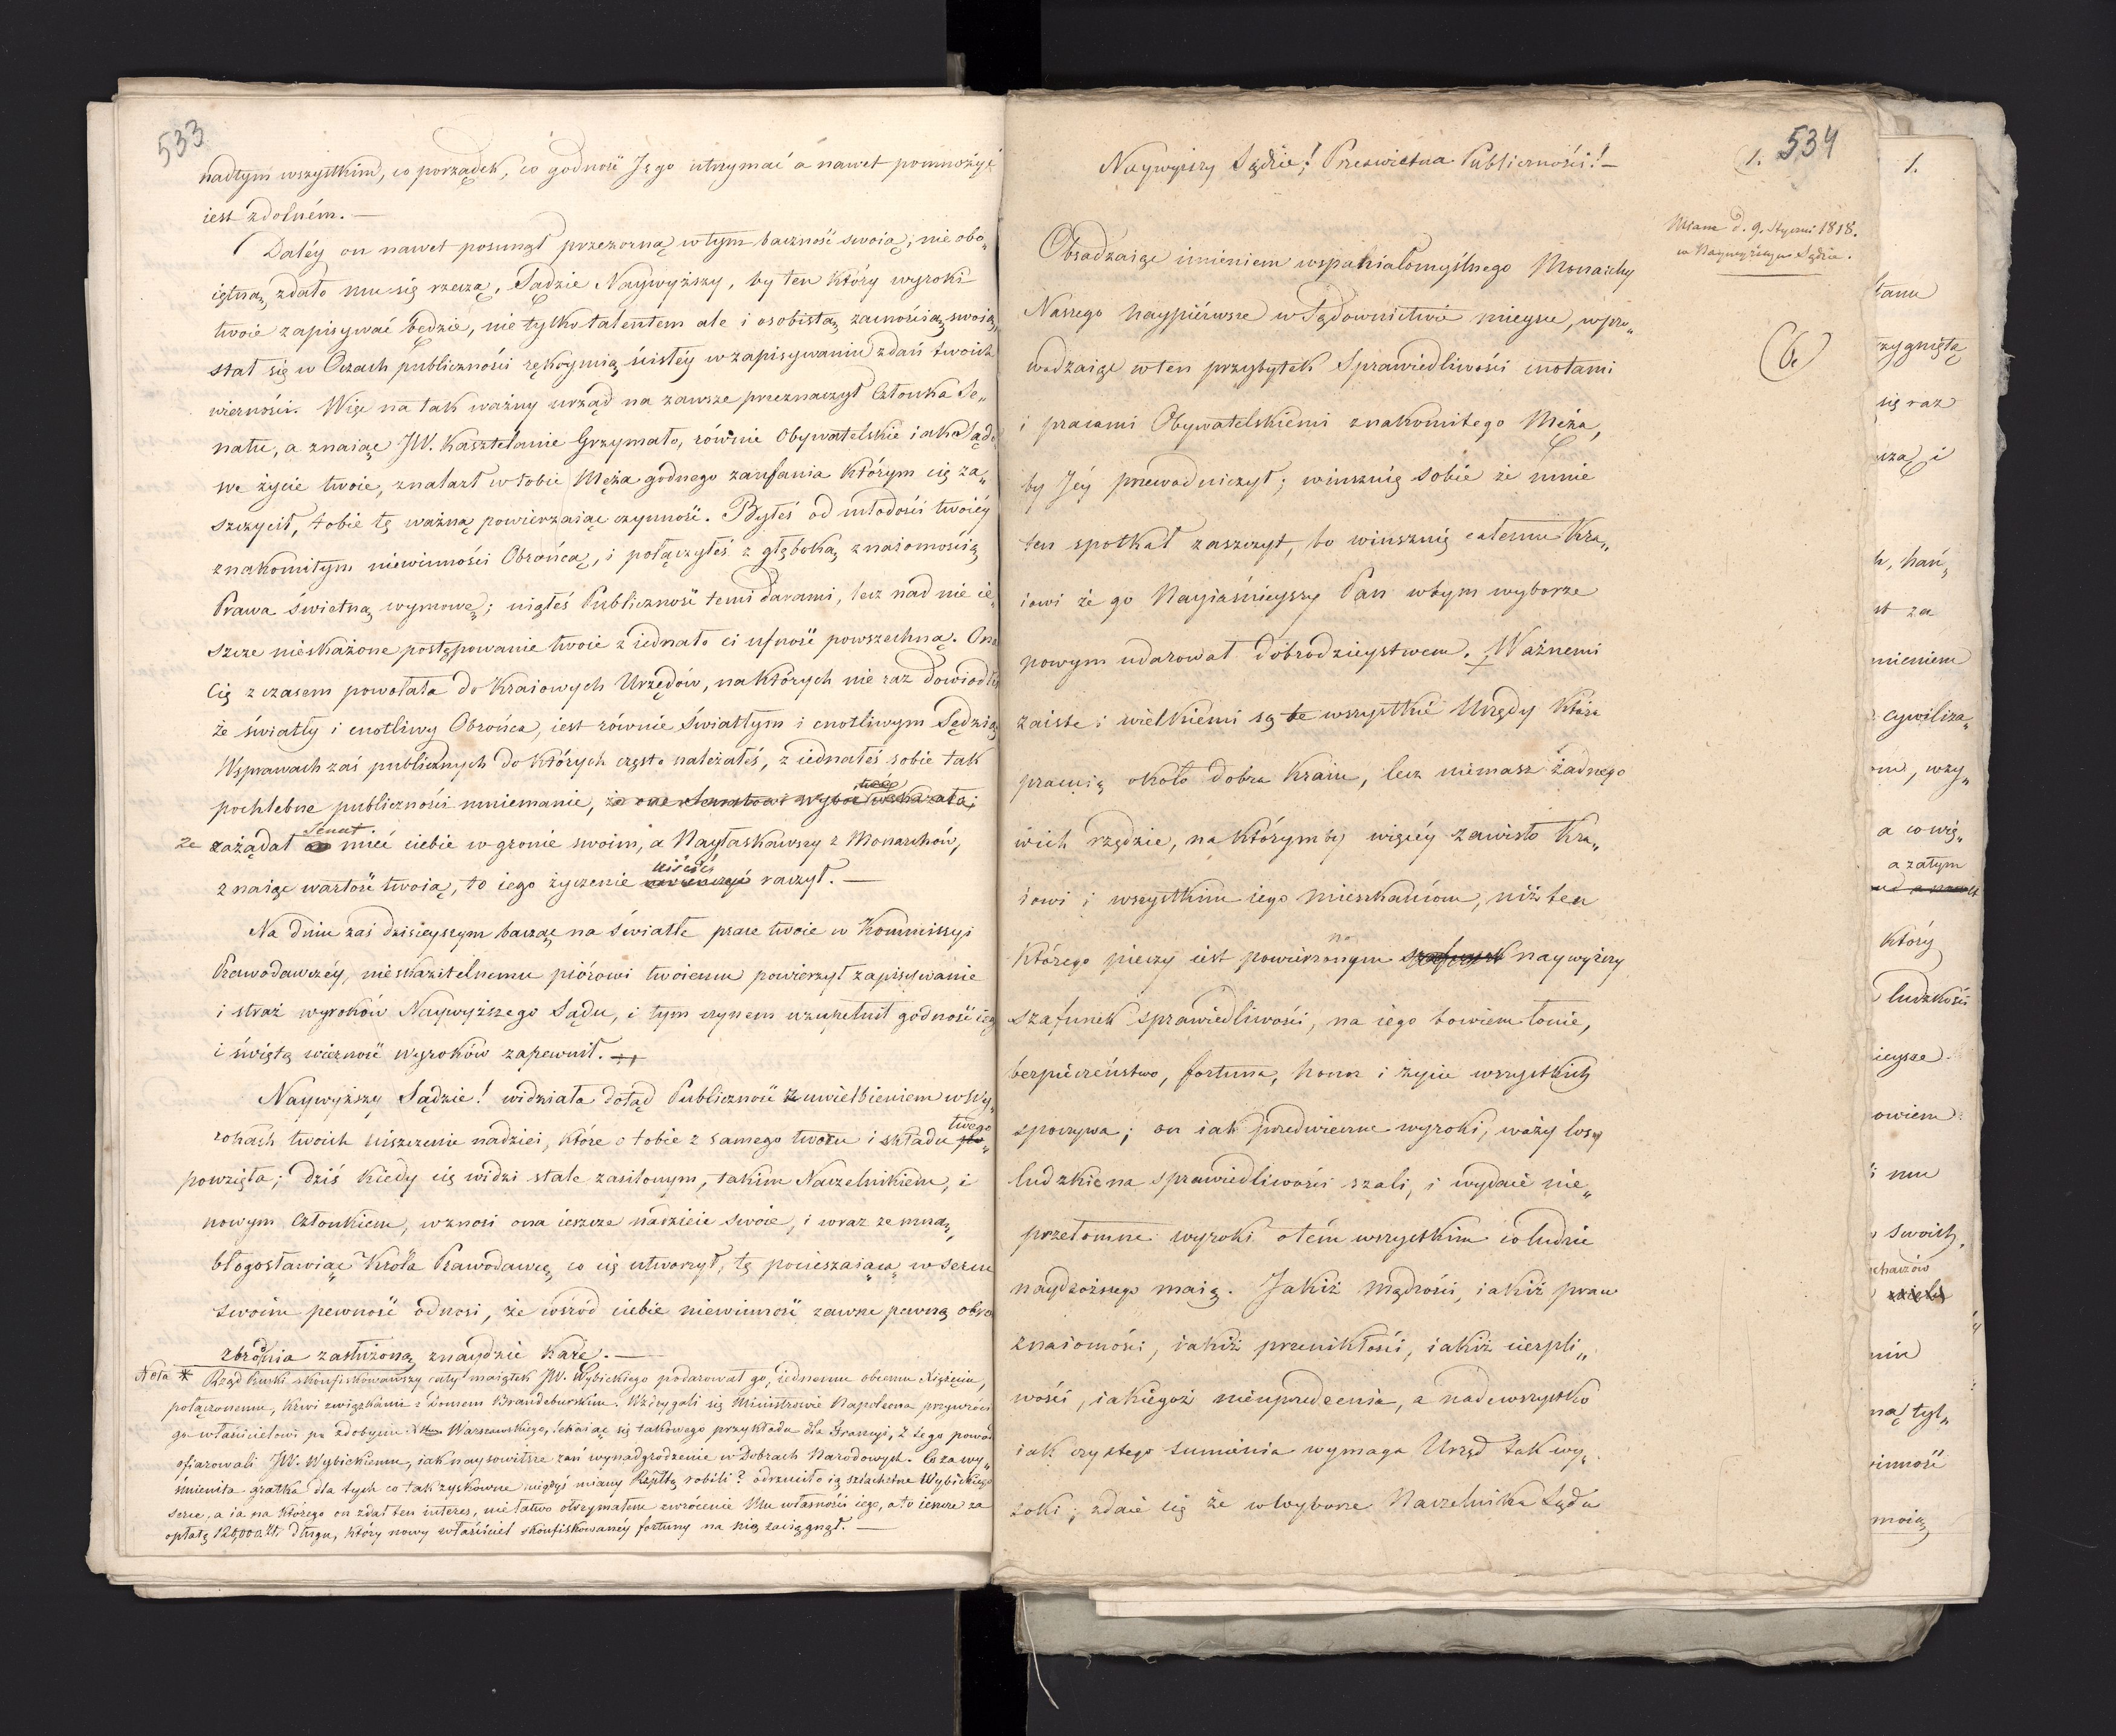 533
nadtym wszystkim, co porządek, co godność Jego utrzymać a nawet pomnożyć
iest zdolném. —
Daléy on nawet posunął przezorną w tym baczność swoią; nie obo„
iętną zdało mu się rzeczą, Sądzie Naywyższy, by ten który wyroki
twoie zapisywać będzie, nie tylko talentem ale i osobistą zacnością swoią,
stał się w Oczach publiczności rękoymią ścisłéy w zapisywaniu zdań twoich
wierności. Więc na tak ważny urząd na zawsze przeznaczył Członka Se„
natu, a znaiąc JW. Kasztelanie Grzymało, równie Obywatelskie iako Sądo
we życie twoie, znalazł w tobie Męża godnego zaufania którym cię za„
szczycił, tobie tę ważną powierzaiąc czynność. Byłeś od młodości twoiéy
znakomitym niewinności Obrońcą, i połączyłeś z głęboką znaiomością
Prawa świetną wymowę; uiąłeś Publiczność temi darami, lecz nad nie ie„
szcze nieskażone postępowanie twoie ziednało ci ufność powszechną. Ona
Cię z czasem powołała do Kraiowych Urzędów, na których nie raz dowiodłeś
że światły i cnotliwy Obrońca, iest równie światłym i cnotliwym Sędzią
W sprawach zaś publicznych do których często należałeś, z iednałeś sobie tak
pochlebne publiczności mniemanie,
że zażądał Senat mieć ciebie w gronie swoim, a Nayłaskawszy z Monarchów,
znaiąc wartość twoią, to iego życzenie uiścić raczył. —
Na dniu zaś dzisieyszym bacząc na światłe prace twoie w Kommissyi
Prawodawczéy, nieskazitelnemu piórowi twoiemu powierzył zapisywanie
i straż wyroków Naywyższego Sądu, i tym czynem uzupełnił godność iego
i świętą wierność wyroków zapewnił.
Naywyższy Sądzie! widziała dotąd Publiczność z uwielbieniem w Wy„
rokach twoich uiszczenie nadziei, które o tobie z samego tworu i składu twego
powzięła; dziś kiedy cię widzi stale zasilonym, takim Naczelnikiem, i
nowym Członkiem, wznosi ona ieszcze nadzieie swoie, i wraz ze mną,
błogosławiąc Króla Prawodawcę, co cię utworzył, tę pocieszaiącą w sercu
swoim pewność odnosi, że wśród ciebie niewinność zawsze pewną obro
zbrodnia zasłużoną znaydzie karę. —
Nota * Rząd Pruski skonfiskowawszy cały maiątek JW. Wybickiego podarował go, iednemu obcemu Xiążęciu,
połączonemu, krwi związkami z Domem Brandeburskim. Wzdrygali się Ministrowie Napoleona przywrócić
go właścicielowi po zdobyciu Xstwa Warszawskiego, lękaiąc się takowego przykładu dla Francyi, z tego powodu
ofiarowali JW. Wybickiemu, iak naysowitsze zań wynadgrodzenie w Dobrach Narodowych. Co za wy„
śmienita gratka dla tych co tak zyskowne między niemi Rzpltą robili? odrzuciło ią szlachetne Wybickiego
serce, a ia na którego on zdał ten interes, nie łatwo otrzymałem zwrócenie Mu własności iego, a to ieszcze za
opłatą 120,000 zł. długu, który nowy właściciel skonfiskowanéy fortuny na nią zaciągnął. —
1. 534
Naywyższy Sądzie! Prześwietna Publiczności! —
Miane d. 9. Stycznia 1818.
w Naywyższym Sądzie.
Obsadzaiąc imieniem wspaniałomyślnego Monarchy
Naszego naypiérwsze w Sądownictwie mieysce, wpro„
wadzaiąc w ten przybytek Sprawiedliwości cnotami
i pracami Obywatelskiemi znakomitego Męża,
by Jéy przewodniczył; winszuię sobie że mnie
ten spotkał zaszczyt, bo winszuię całemu Kra„
iowi że go Nayiaśnieyszy Pan w tym wyborze
nowym udarował dobrodzieystwem. Ważnemi
zaiste i wielkiemi są te wszystkie Urzędy które
pracuią około dobra Kraiu, lecz niemasz żadnego
w ich rzędzie, na którymby więcéy zawisło Kra„
iowi i wszystkim iego mieszkańcom, niż ten
którego pieczy iest powierzonym naywyższy
szafunek sprawiedliwości, na iego bowiem łonie,
bezpieczeństwo, fortuna, honor i życie wszystkich
spoczywa; on iak przedwieczne wyroki, waży losy
ludzkie na sprawiedliwości szali, i wydaie nie„
przełomne wyroki o tém wszystkim co ludzie
naydroższego maią. Jakiéż mądrości, iakiéż praw
znaiomości, iakiéż przenikłości, iakiéż cierpli„
wości, iakiegoż nieuprzedzenia, a nadewszystko
iak czystego sumienia wymaga Urząd tak wy„
soki; zdaie się że w wyborze Naczelnika Sądu
1.
tanu
się raz
st za
mieniem
cywiliza„
a co wię„
a zatym
który
ludzkości
owiem
mu
swoich,
ną tyl„
moią,